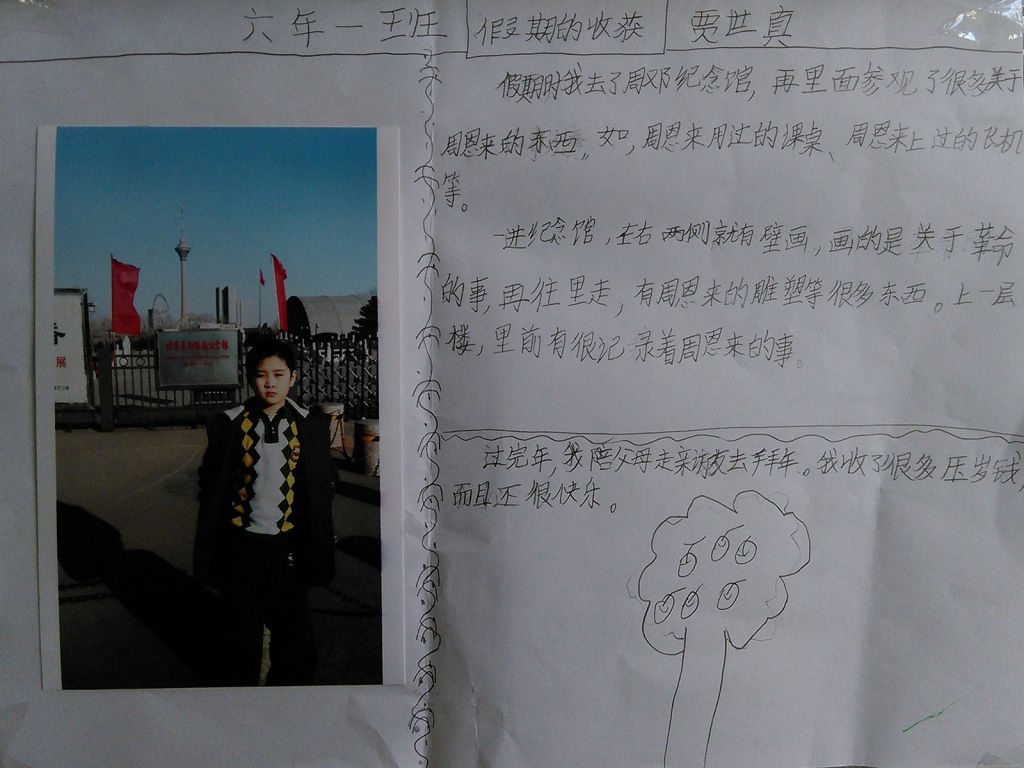 六年一班 假期的收获 贾世真
假期时我去了周邓纪念馆，再里面参观了很多关于
周恩来的东西。如，周恩来用过的课桌、周恩来上过的飞机
等。
一进纪念馆，左右两侧就有壁画，画的是关于革命
的事，再往里走，有周恩来的雕塑等很多东西。上一层
楼，里前有很记录着周恩来的事。
过完年，我陪父母走亲访友去拜年。我收了很多压岁钱，
而且还很快乐。
周恩来邓颖超纪念馆
展